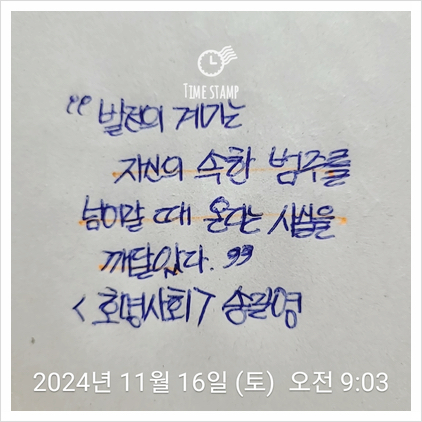 TIME STAMP
“발전의 계기는
자신의 속한 범주를
넘어갈 때 온다는 사실을
깨달았다.”
<호명사회> 송길영
2024년 11월 16일 (토) 오전 9:03